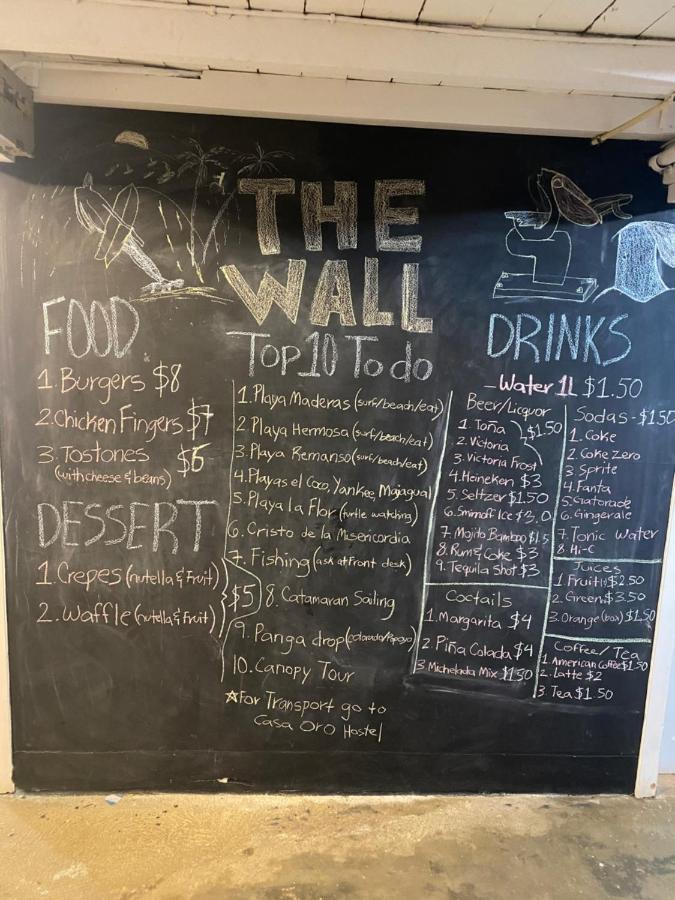 THE
WALL
FOOD
1. Burgers $8
2. Chicken Fingers $7
3. Tostones $6
(with cheese & beans)
DESSERT
1. Crepes (nutella & Fruit)
2. Waffle (nutella & fruit)
$5
Top 10 To do
1. Playa Maderas (surf/beach/eat)
2 Playa Hermosa (surf/beach/eat)
3. Playa Remanso (surf/beach/eat)
4. Playas el Coco, Yankee, Majagual
5. Playa la Flor (turtle watching)
6. Cristo de la Misericordia
7. Fishing (ask at front desk)
8. Catamaran Sailing
9. Panga drop (colorado/Popoyo)
10. Canopy Tour
☆For Transport go to
Casa Oro Hostel
DRINKS
- Water 1L $1.50
Beer/Liquor
1. Toña
2. Victoria
3. Victoria Frost
$1.50
4. Heineken $3
5. Seltzer $1.50
6. Smirnoff Ice $3.0
7. Mojito Bamboo $1.5
8. Rum & Coke $3
9. Tequila Shot $3
Coctails
1. Margarita $4
2. Piña Colada $4
3 Michelada Mix $1.50
Sodas - $1.50
1. Coke
2. Coke Zero
3. Sprite
4. Fanta
5. Gatorade
6. Gingerale
7. Tonic Water
8. Hi-C
Juices
1 Fruit $2.50
2. Green $3.50
3. Orange (box) $1.50
Coffee/Tea
1. American Coffee $1.50
2. Latte $2
3. Tea $1.50